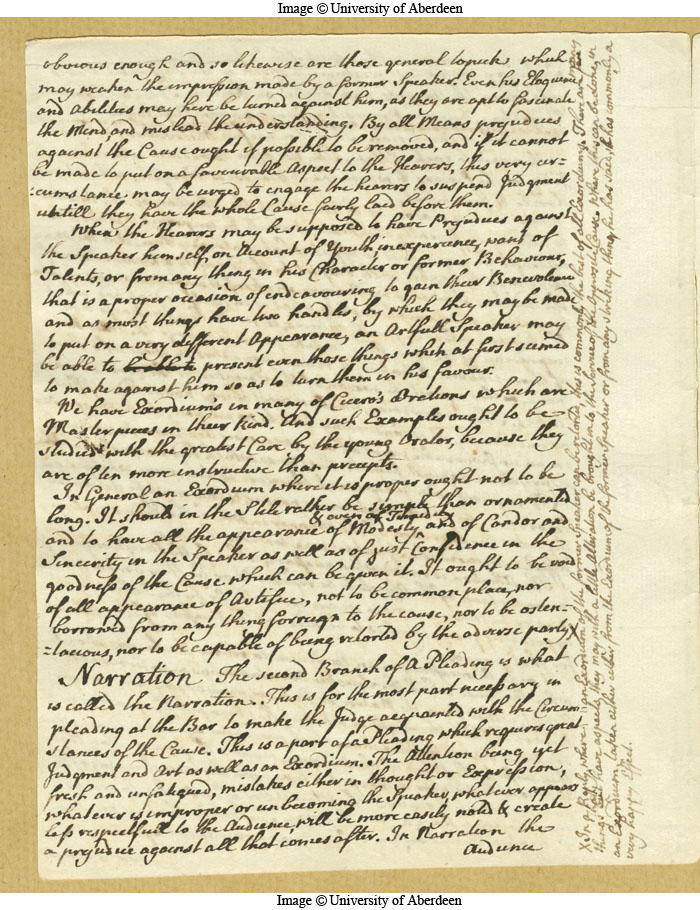 Image © University of Aberdeen
obvious enough and so likewise are those general topick which
may weaken the impression made by a former Speaker. Even his Eloquence
and abilities may here be turned against him, as they are apt to fascinate
the Mind, and mislead the understanding. By all Means prejudices
against the Cause ought if possible to be removed, and if it cannot
be made to put on a favourable Aspect to the Hearers, this very cir-
:cumstance may be urged to engage the hearers to suspend Judgment
untill they have the whole Cause fairly laid before them.
When the Hearers may be supposed to have Prejudices against
the Speaker himself, on Account of Youth, inexperience, want of
Talents, or from any thing in his Character or former Behaviour,
that is a proper occasion of endeavouring to gain their Benevolence
and as most things have two handles, by which they may be made
to put on a very different Appearance, an Artfull Speaker may
be able to be able to present even those things which at first seemed
to make against him so as to turn them in his favour.
We have Exordium's in many of Cicero's Orations which are
Master pieces in their kind. And such Examples ought to be
studied with the greatest Care by the young Orator, because they
are often more instructive than precepts.
In General an Exordium where it is proper ought not to be
long. It should in the Stile rather be simple than ornamented
& even of Timidity
and to have all the appearance of Modesty and of Candor and
Sincerity in the Speaker as well as of just Confidence in the
goodness of the Cause which can be given it. It ought to be void
of all appearance of Artifice, not to be common place, nor
borrowed from any thing forreign to the cause, nor to be osten-
-tatious, nor to be capable of being retorted by the adverse party X
Narration The second Branch of a Pleading is what
is called the Narration. This is for the most part necessary in
pleading at the Bar to make the Judge acquainted with the Circum
stances of the Cause. This is a part of a Pleading which requires great
Judgment and Art as well as an Exordium. The Attention being yet
fresh and unfatigued, mistakes either in thought or Expression,
whatever is improper or unbecoming the Speaker, whatever appears
less respectfull to the Audience, will be more easily noted & create
a prejudice against all that comes after. In Narration the
Audience
X In a Reply, where an Exordium of the former Speaker can be retorted, this is commonly the best of all Exordiums. There are few
things but have aspects, they may with a little Attention be brought to the Service of the Opposite Cause. Where this can be done, in
an Exordium taken either from the Exordium of the former Speaker or from any striking thing he has said, it has commonly a
very happy Effect.
Image © University of Aberdeen